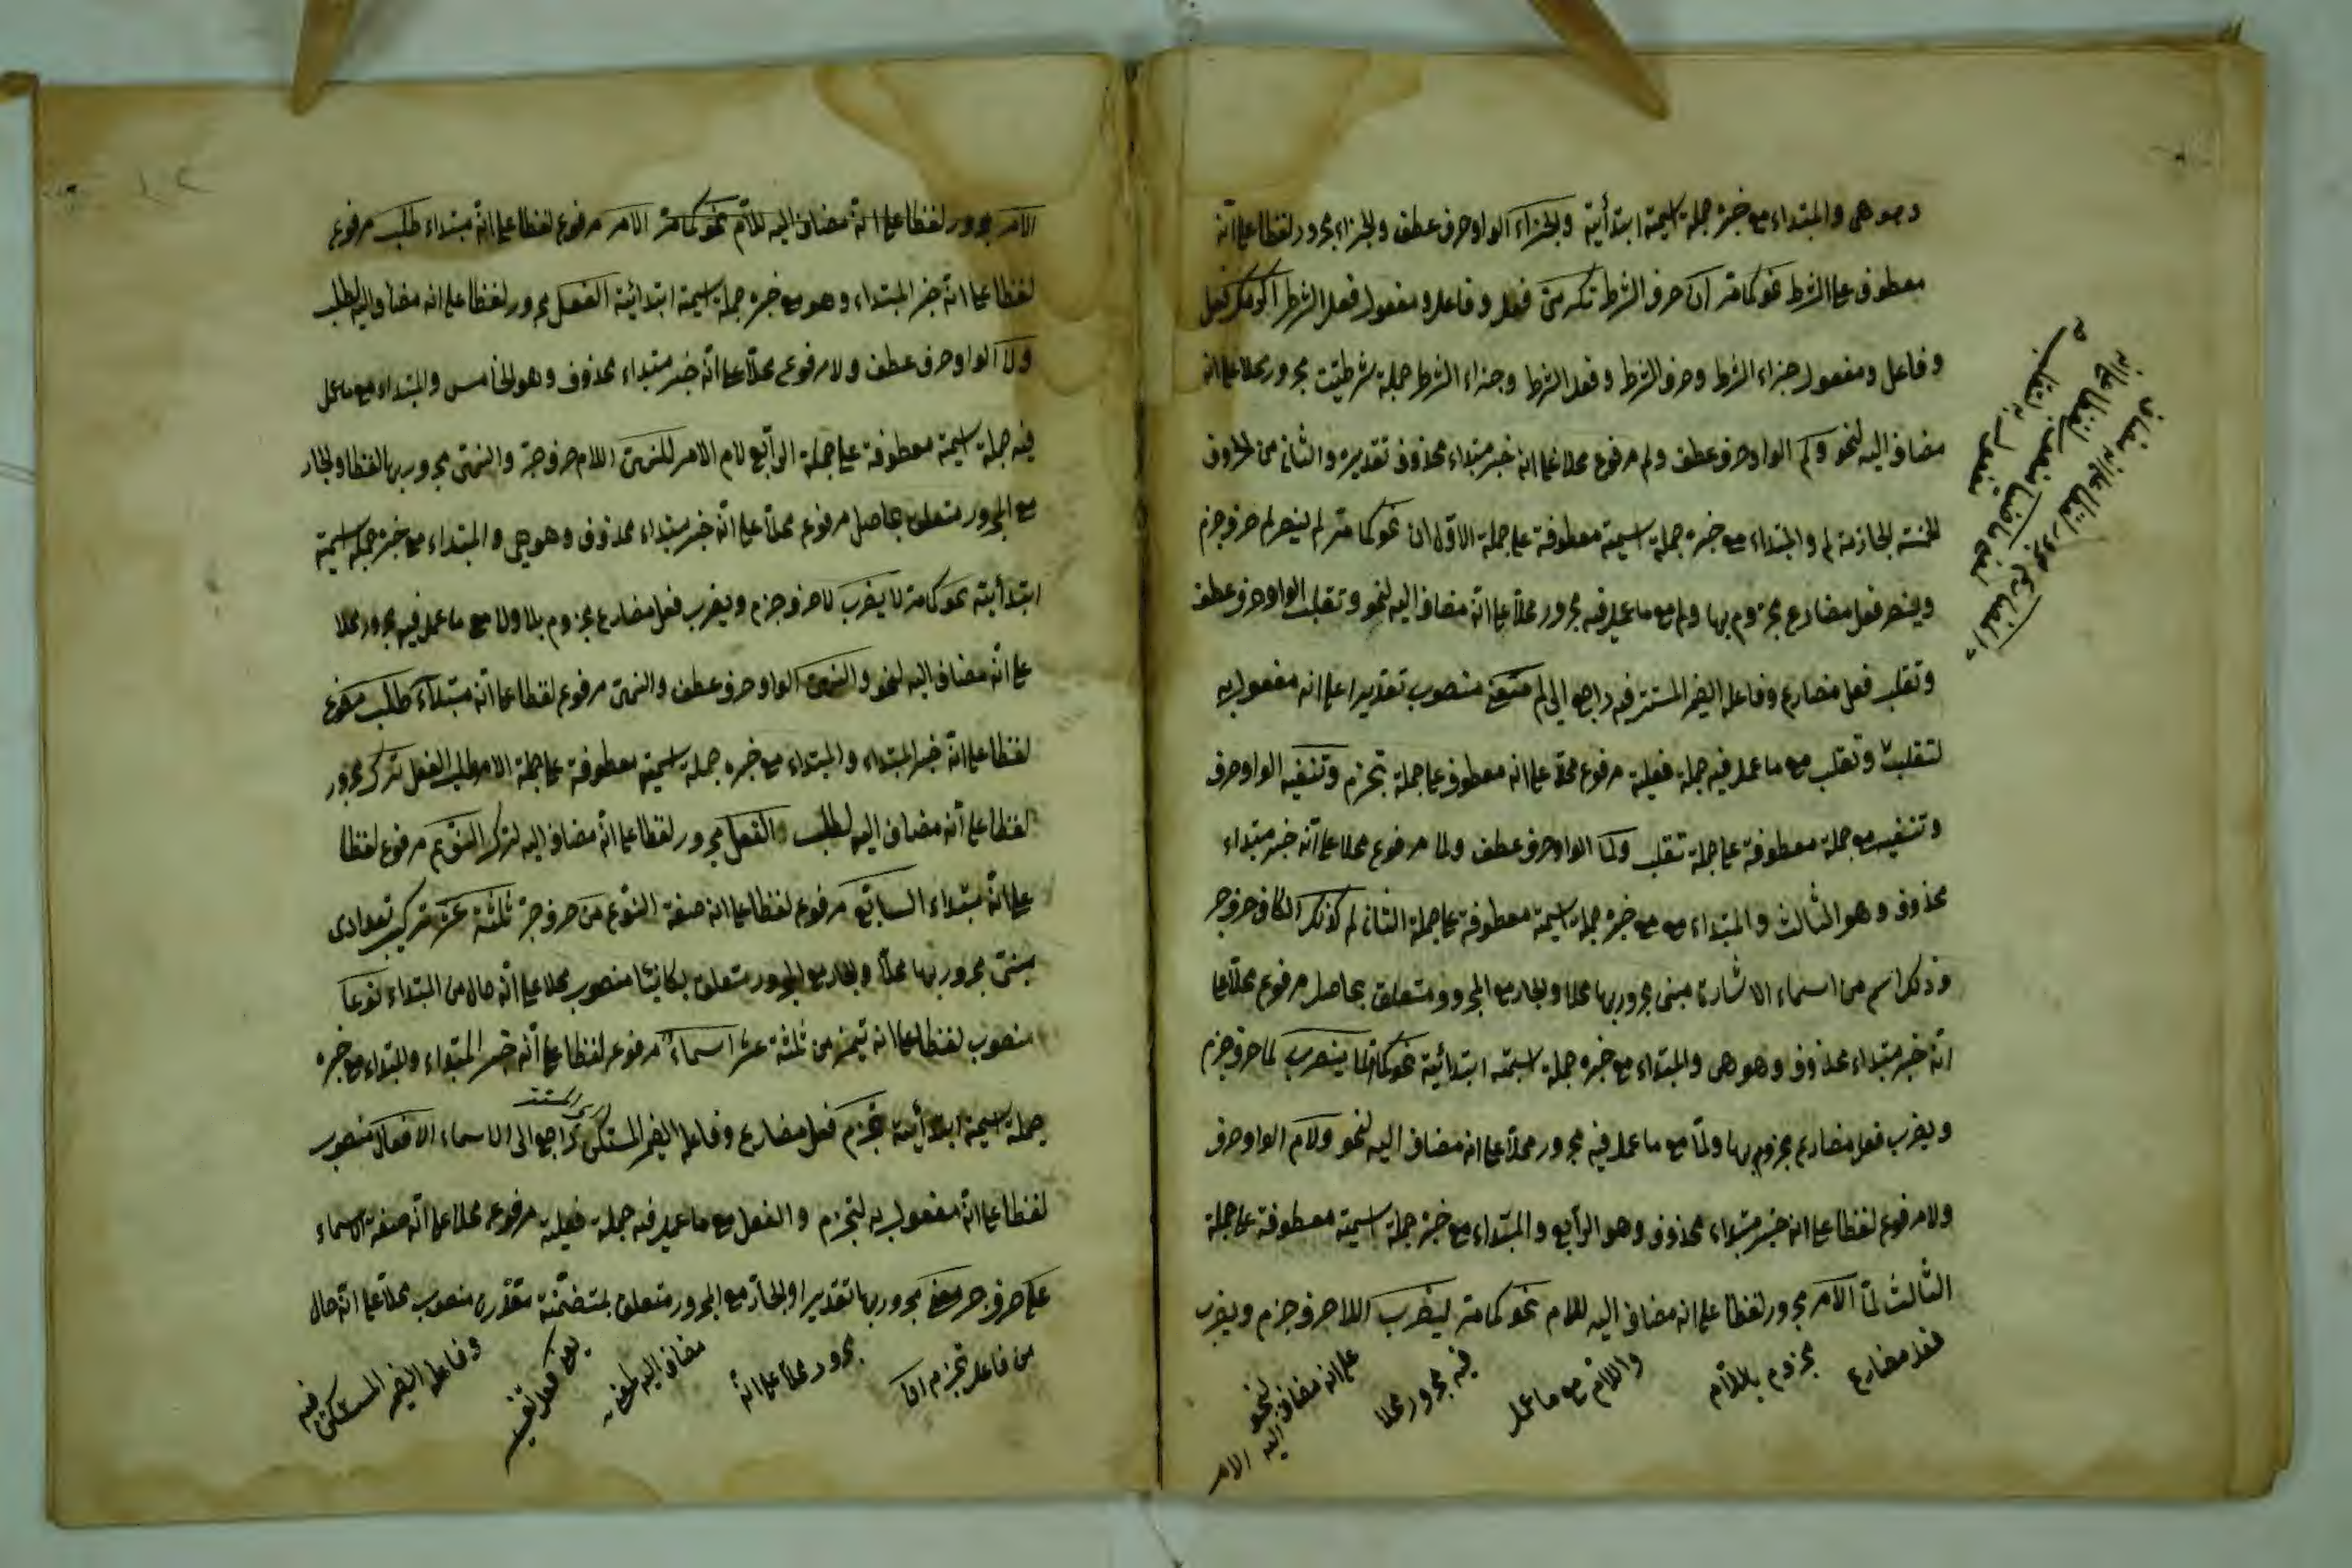 وهو هي والمبتداء مع خبره جملة اسمية ابتدأية والجزاء الواو حرف عطف والجزاء مجرور لفظا على انه
معطوف على الشرط نحو كما مر ان حرف الشرط تكرمني فعل وفاعله ومفعول فعل الشرط اكرمك فعل
وفاعل ومفعول جزاء الشرط وحرف الشرط وفعل الشرط وجزاء الشرط جملة شرطية مجرور محلا على انه
مضاف اليه لنحو ولم الواو حرف عطف ولم مرفوع محلا على انه خبر مبتداء محذوف تقديره والثاني من الحروف
الخمسة الجازمة لم والمبتداء مع خبره جملة اسمية معطوفة على جملة الاول ان نحو كما مر لم ينصر لم حرف جزم
وينصر فعل مضارع مجزوم بها ولم مع ما عمل فيه مجرور محلا على انه مضاف اليه لنحو وتقلب الواو حرف عطف
وتقلب فعل مضارع وفاعله الضمير المستتر فيه راجع الى لم منصوب تقديرا على انه مفعول به
لتقلب وتقلب مع ما عمل فيه جملة فعلية مرفوع محلا على انه معطوف على جملة تجزم وتنفيه الواو حرف
وتنفيه مع جملة معطوفة على جملة تقلب ولما الواو حرف عطف ولما مرفوع محلا على انه خبر مبتداء
محذوف وهو الثالث والمبتداء مع مع خبره جملة اسمية معطوفة على جملة الثاني لم كذلك الكاف حرف جر
وذلك اسم من اسماء الاشارة مبني مجرور بها محلا والجار مع المجرور متعلق بحاصل مرفوع محلا على
انه خبر مبتداء محذوف وهو هي والمبتداء مع خبره جملة اسمية ابتدائية نحو كما مر لما يضرب لما حرف جزم
ويضرب فعل مضارع مجزوم بها ولما مع ما عمل فيه مجرور محلا على انه مضاف اليه لنحو ولام الواو حرف
ولام مرفوع لفظا على انه خبر مبتداء محذوف وهو الرابع والمبتداء مع خبره جملة اسمية معطوفة على جملة
الثالث لما الامر مجرور لفظا على انه مضاف اليه للام نحو كما مر ليضرب اللام حرف جزم ويضرب
فعل مضارع مجزوم باللام واللام مع ما عمل فيه مجرور محلا على انه مضاف اليه لنحو الامر
الامر مجرور لفظا على انه مضاف اليه للام نحو كما مر الامر مرفوع لفظا على انه مبتداء طلب مرفوع
لفظا على انه خبر المبتداء وهو مع خبره جملة اسمية ابتدائية الفعل مجرور لفظا على انه مضاف اليه لطلب
ولا الواو حرف عطف ولا مرفوع محلا على انه خبر مبتداء محذوف وهو الخامس والمبتداء مع ما عمل
فيه جملة اسمية معطوفة على جملة الرابع لام الامر للنهي اللام حرف جر والنهي مجرور بها لفظا والجار
مع المجرور متعلق بحاصل مرفوع محلا على انه خبر مبتداء محذوف وهو هي والمبتداء مع خبره جملة اسمية
ابتدأية نحو كما مر لا يضرب لا حرف جزم ويضرب فعل مضارع مجزوم بلا ولا مع ما عمل فيه مجرور محلا
على انه مضاف اليه لنحو والنهي الواو حرف عطف والنهي مرفوع لفظا على انه مبتداء طلب مرفوع
لفظا على انه خبر المبتداء والمبتداء مع خبره جملة اسمية معطوفة على جملة الامر طلب الفعل ترك مجرور
لفظا على انه مضاف اليه لطلب الفعل مجرور لفظا على انه مضاف اليه لترك النوع مرفوع لفظا
على انه مبتداء السابع مرفوع لفظا على انه صفة النوع من حرف جر ثلثة عشر تركيب تعدادى
مبني مجرور بها محلا والجار مع المجرور متعلق بكائنا منصوب محلا على انه حال من المبتداء نوعا
منصوب لفظا على انه تميز من ثلثة عشر اسماء مرفوع لفظا على انه خبر المبتداء والمبتداء مع خبره
جملة اسمية ابتدأية تجزم فعل مضارع وفاعله الضمير المستكن راجع الى الاسماء الافعال منصوب
لفظا على انه مفعول به لتجزم والفعل مع ما عمل فيه جملة فعلية مرفوع محلا على انه صفة الاسماء
على حرف جر معنى مجرور بها تقديرا والجار مع المجرور متعلق بمتضمنة مقدرة منصوب محلا على انه حال
من فاعل تجزم مجرور محلا على انه مضاف اليه وفاعله الضمير المستكن فيه